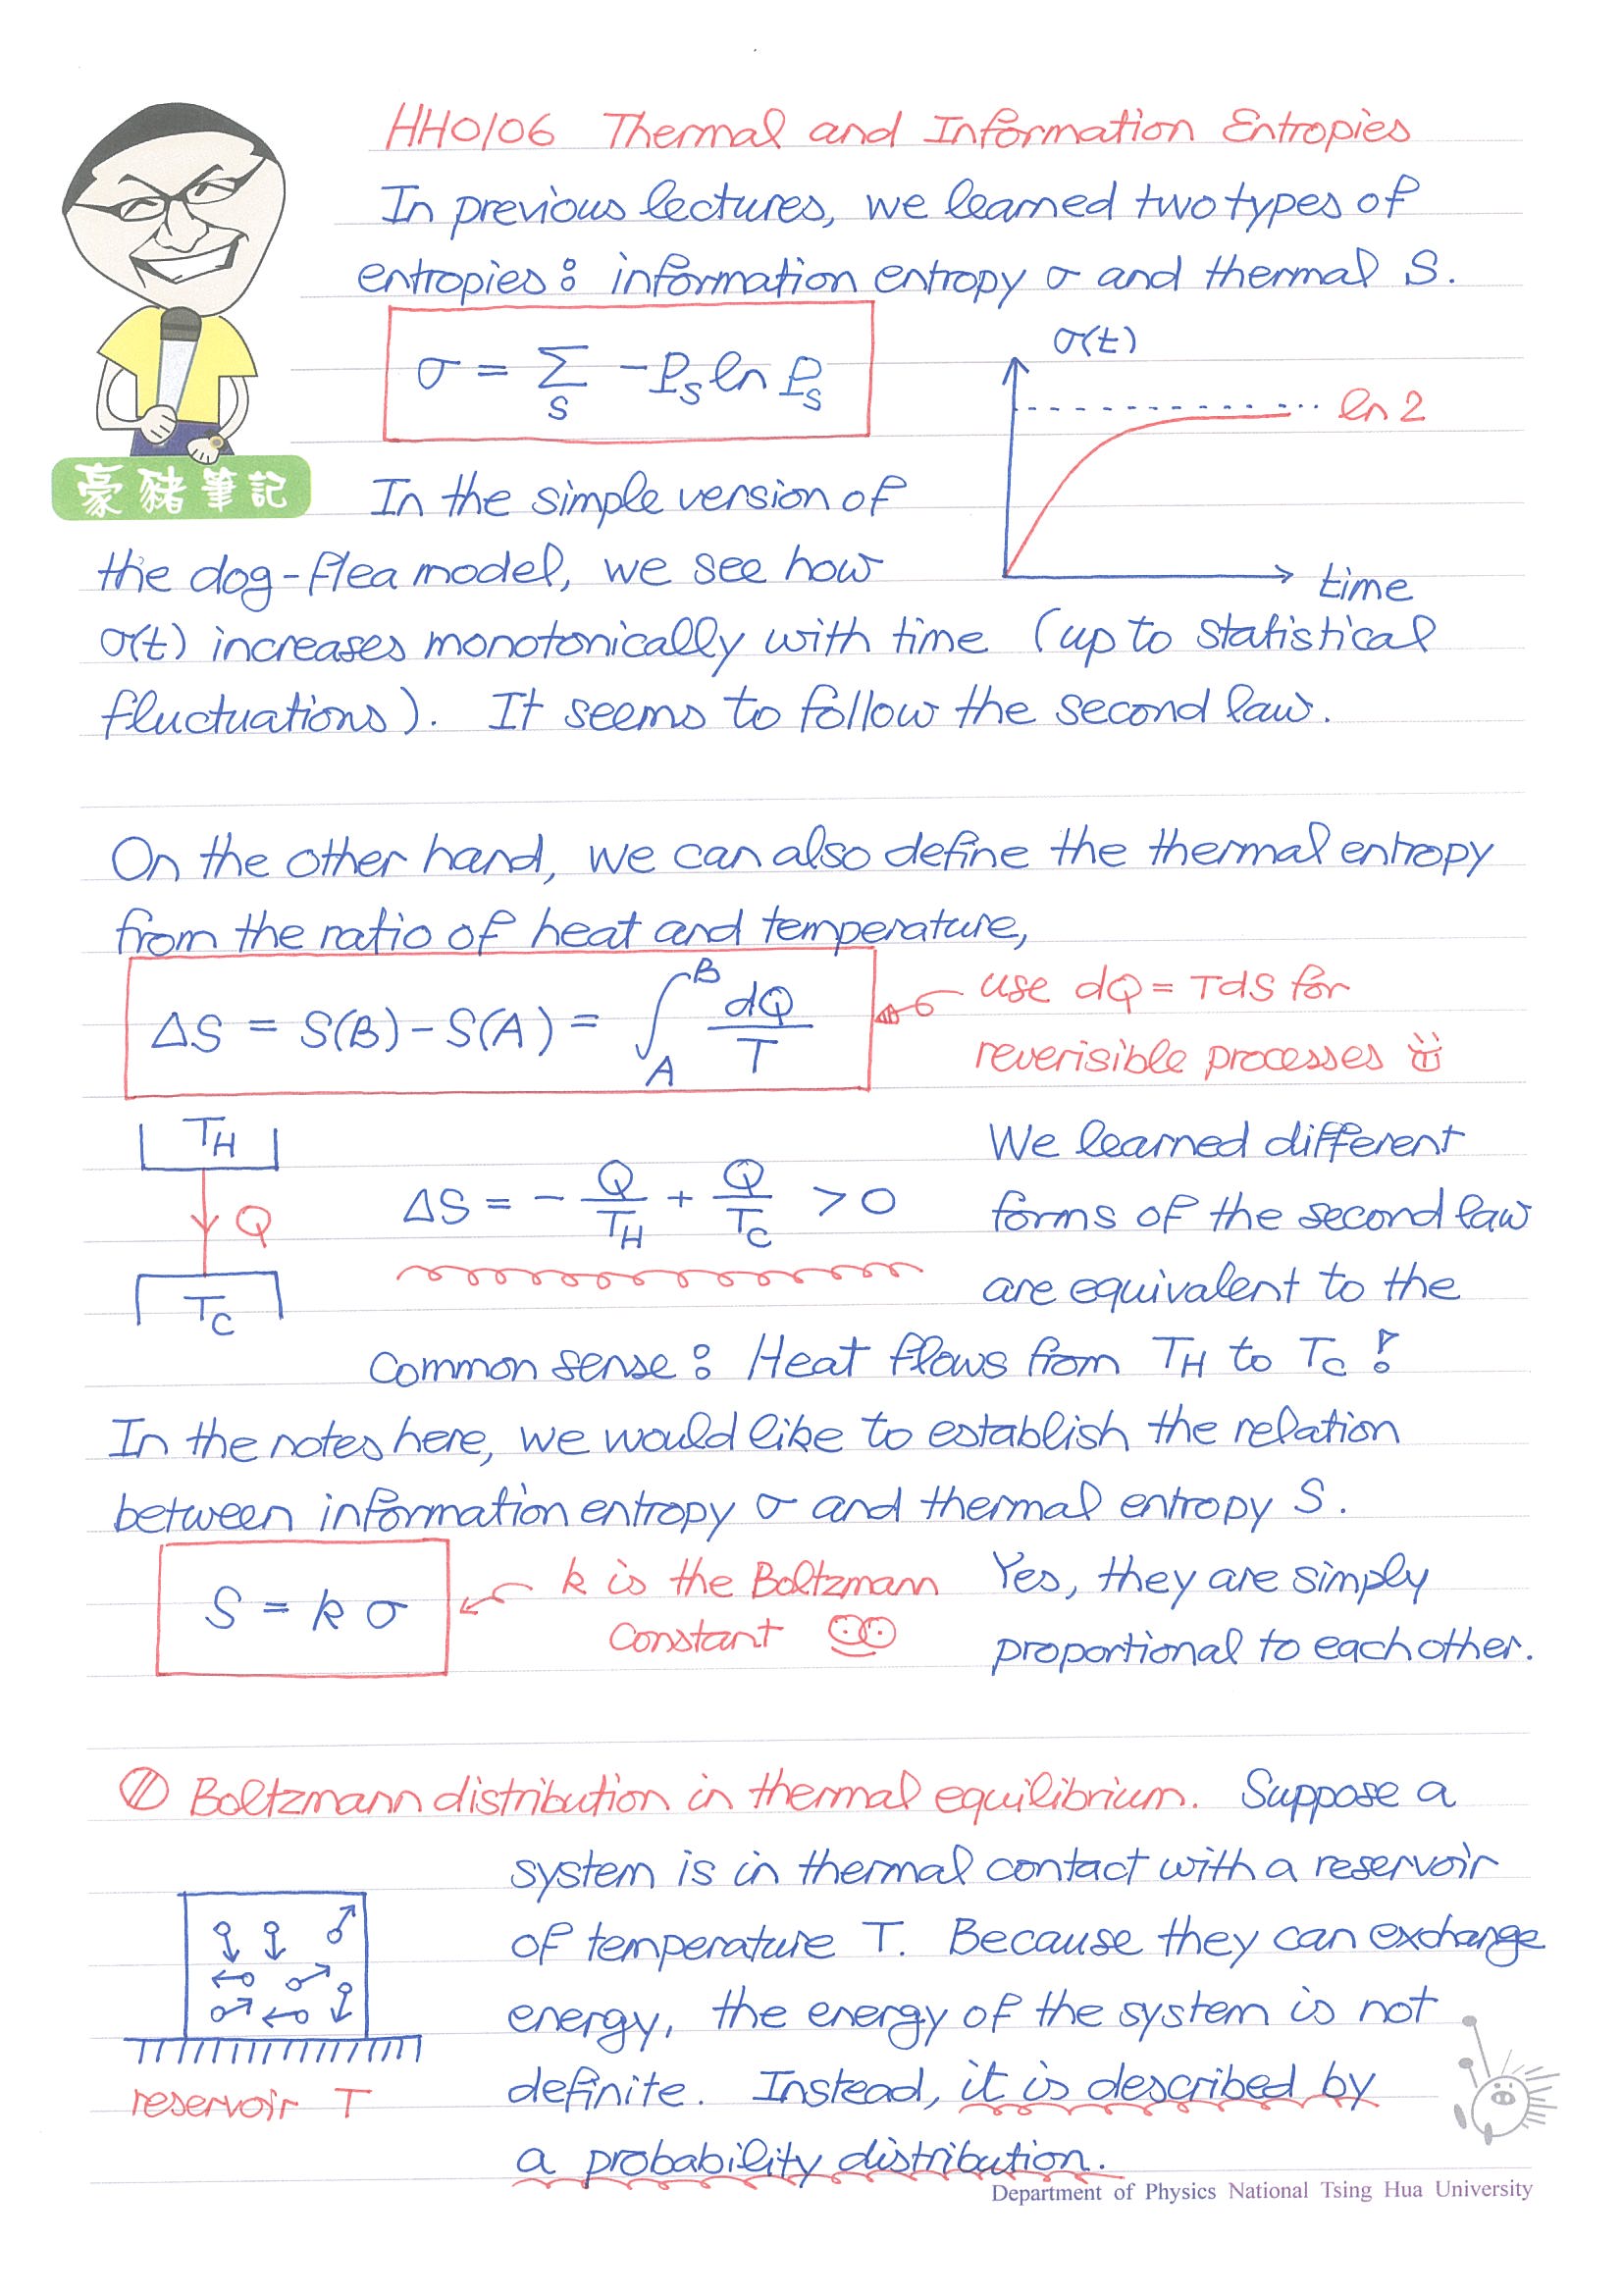 HH0106 Thermal and Information Entropies
In previous lectures, we learned two types of
entropies: information entropy σ and thermal S.
σ = Σ_S -P_S ln P_S
σ(t)
ln 2
time
豪豬筆記
In the simple version of
the dog-flea model, we see how
σ(t) increases monotonically with time (up to statistical
fluctuations). It seems to follow the second law.
On the other hand, we can also define the thermal entropy
from the ratio of heat and temperature,
ΔS = S(B) - S(A) = ∫_A^B dQ/T
use dQ = TdS for
reverisible processes
T_H
Q
T_C
ΔS = - Q/T_H + Q/T_C > 0
We learned different
forms of the second law
are equivalent to the
common sense: Heat flows from T_H to T_C!
In the notes here, we would like to establish the relation
between information entropy σ and thermal entropy S.
S = k σ
k is the Boltzmann
constant
Yes, they are simply
proportional to each other.
Boltzmann distribution in thermal equilibrium. Suppose a
system is in thermal contact with a reservoir
of temperature T. Because they can exchange
energy, the energy of the system is not
definite. Instead, it is described by
a probability distribution.
reservoir T
Department of Physics National Tsing Hua University